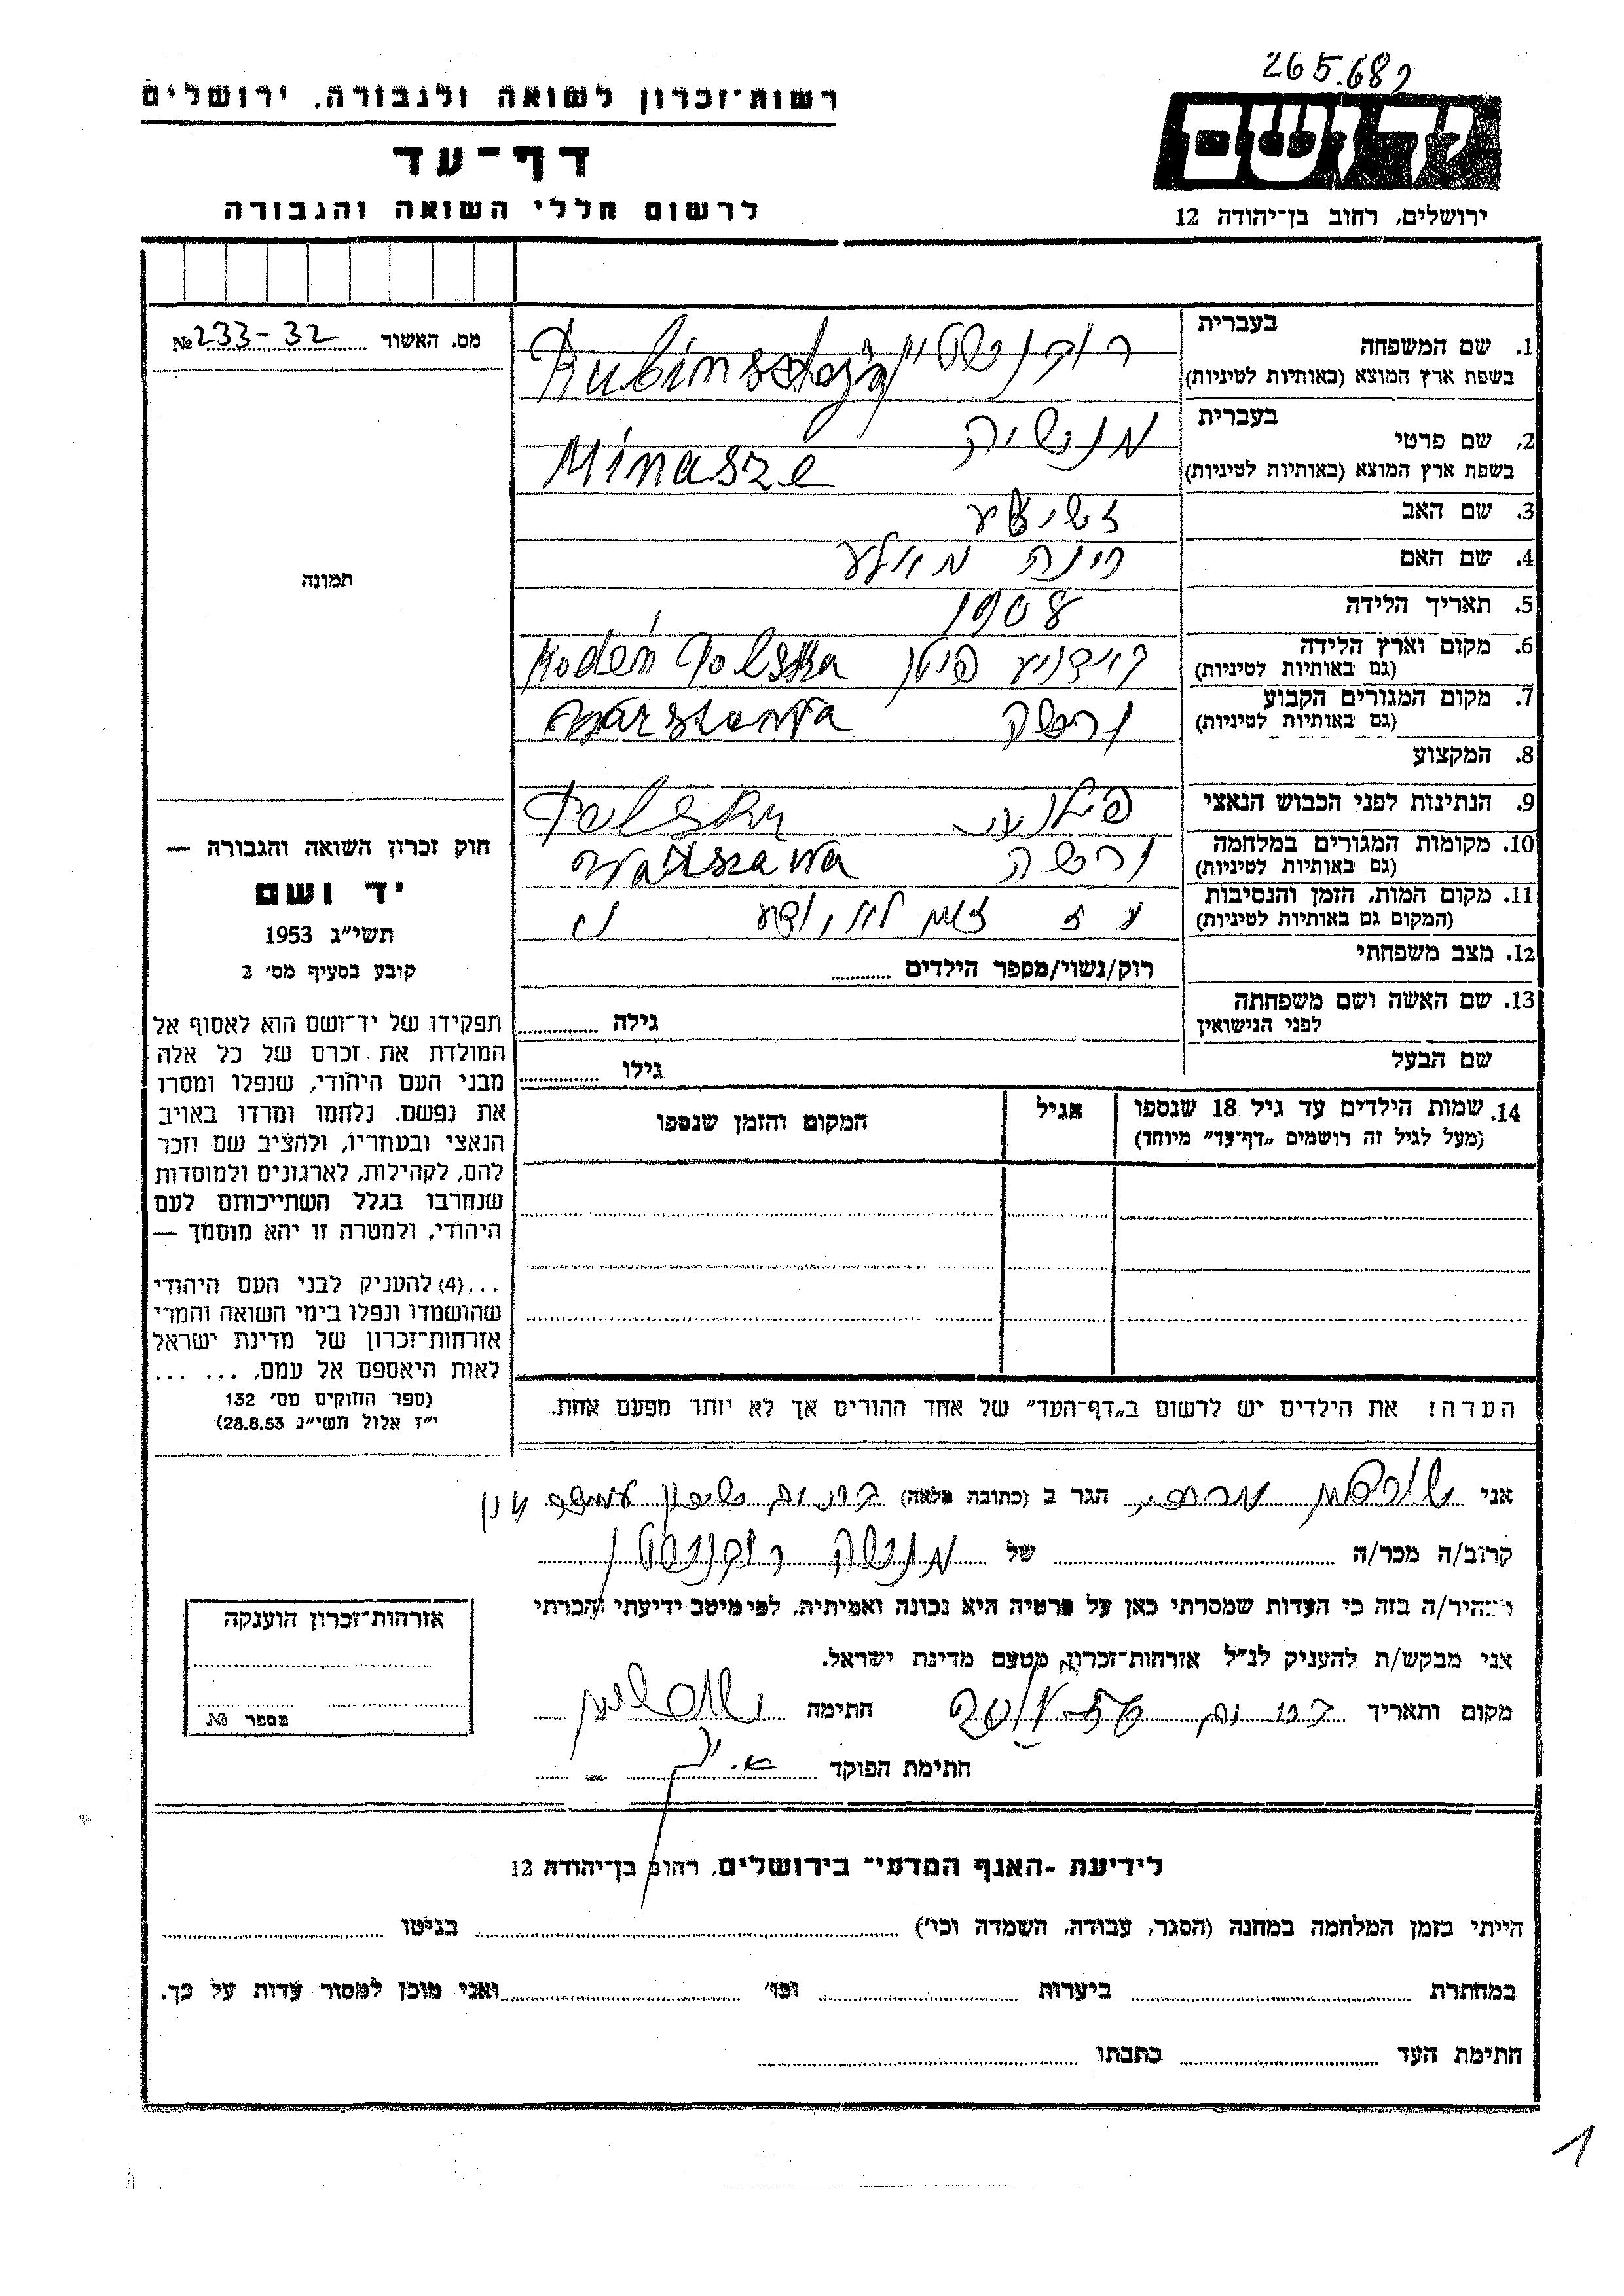 265.682
רשות־זכרון לשואה ולגבורה, ירושלים
דף־עד
לרשום חללי השואה והגבורה
יד ושם
ירושלים, רחוב בן־יהודה 12
מס. האשור № 233-32
תמונה
חוק זכרון השואה והגבורה —
יד ושם
תשי״ג 1953
קובע בסעיף מס׳ 2
תפקידו של יד־ושם הוא לאסוף אל
המולדת את זכרם של כל אלה
מבני העם היהודי, שנפלו ומסרו
את נפשם. נלחמו ומרדו באויב
הנאצי ובעוזריו, ולהציב שם וזכר
להם, לקהילות, לארגונים ולמוסדות
שנחרבו בגלל השתייכותם לעם
היהודי, ולמטרה זו יהא מוסמך —
...(4) להעניק לבני העם היהודי
שהושמדו ונפלו בימי השואה והמרי
אזרחות־זכרון של מדינת ישראל
לאות היאספם אל עמם, ... ...
(ספר החוקים מס׳ 132
י״ז אלול תשי״ג 28.8.53)
1. שם המשפחה בעברית רובינשטיין
בשפת ארץ המוצא (באותיות לטיניות)
2. שם פרטי בעברית מנשיה
בשפת ארץ המוצא (באותיות לטיניות) Minasze
3. שם האב
4. שם האם
5. תאריך הלידה 1908
6. מקום וארץ הלידה
(גם באותיות לטיניות) Kodeń Polska
7. מקום המגורים הקבוע ורשה
(גם באותיות לטיניות) Warszawa
8. המקצוע
9. הנתינות לפני הכבוש הנאצי
10. מקומות המגורים במלחמה ורשה
(גם באותיות לטיניות) Warszawa
11. מקום המות, הזמן והנסיבות
(המקום גם באותיות לטיניות)
12. מצב משפחתי רוק/נשוי/מספר הילדים
13. שם האשה ושם משפחתה
לפני הנישואין גילה
שם הבעל גילו
14. שמות הילדים עד גיל 18 שנספו
(מעל לגיל זה רושמים „דף־עד״ מיוחד)
הגיל
המקום והזמן שנספו
הערה! את הילדים יש לרשום ב„דף־העד״ של אחד ההורים אך לא יותר מפעם אחת.
אני הגר ב (כתובת מלאה)
קרוב/ה מכר/ה של מנשה רובינשטין
מצהיר/ה בזה כי העדות שמסרתי כאן על פרטיה היא נכונה ואמיתית, לפי מיטב ידיעתי והכרתי
אני מבקש/ת להעניק לנ״ל אזרחות־זכרון מטעם מדינת ישראל.
מקום ותאריך חתימה
חתימת הפוקד
אזרחות־זכרון הוענקה
מספר №
לידיעת ־האגף המדעי־ בירושלים, רחוב בן־יהודה 12
הייתי בזמן המלחמה במחנה (הסגר, עבודה, השמדה וכו׳) בגיטו
במחתרת ביערות וכו׳ ואני מוכן למסור עדות על כך.
חתימת העד כתבתו
1